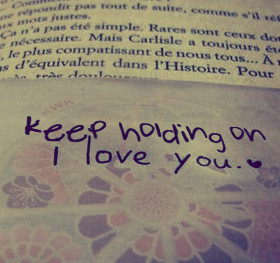 ne répondit pas tout de suite, comme s'il
mots justes.
Ça n'a pas été simple. Rares sont ceux dot
nécessaire. Mais Carlisle a toujours ét
, le plus compatissant de nous tous... À
s d'équivalent dans l'Histoire. Pour
très
keep holding on
I love you.